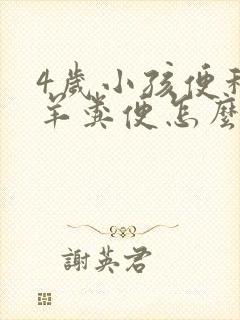 4歲小孩便
羊糞便怎麼
謝英君